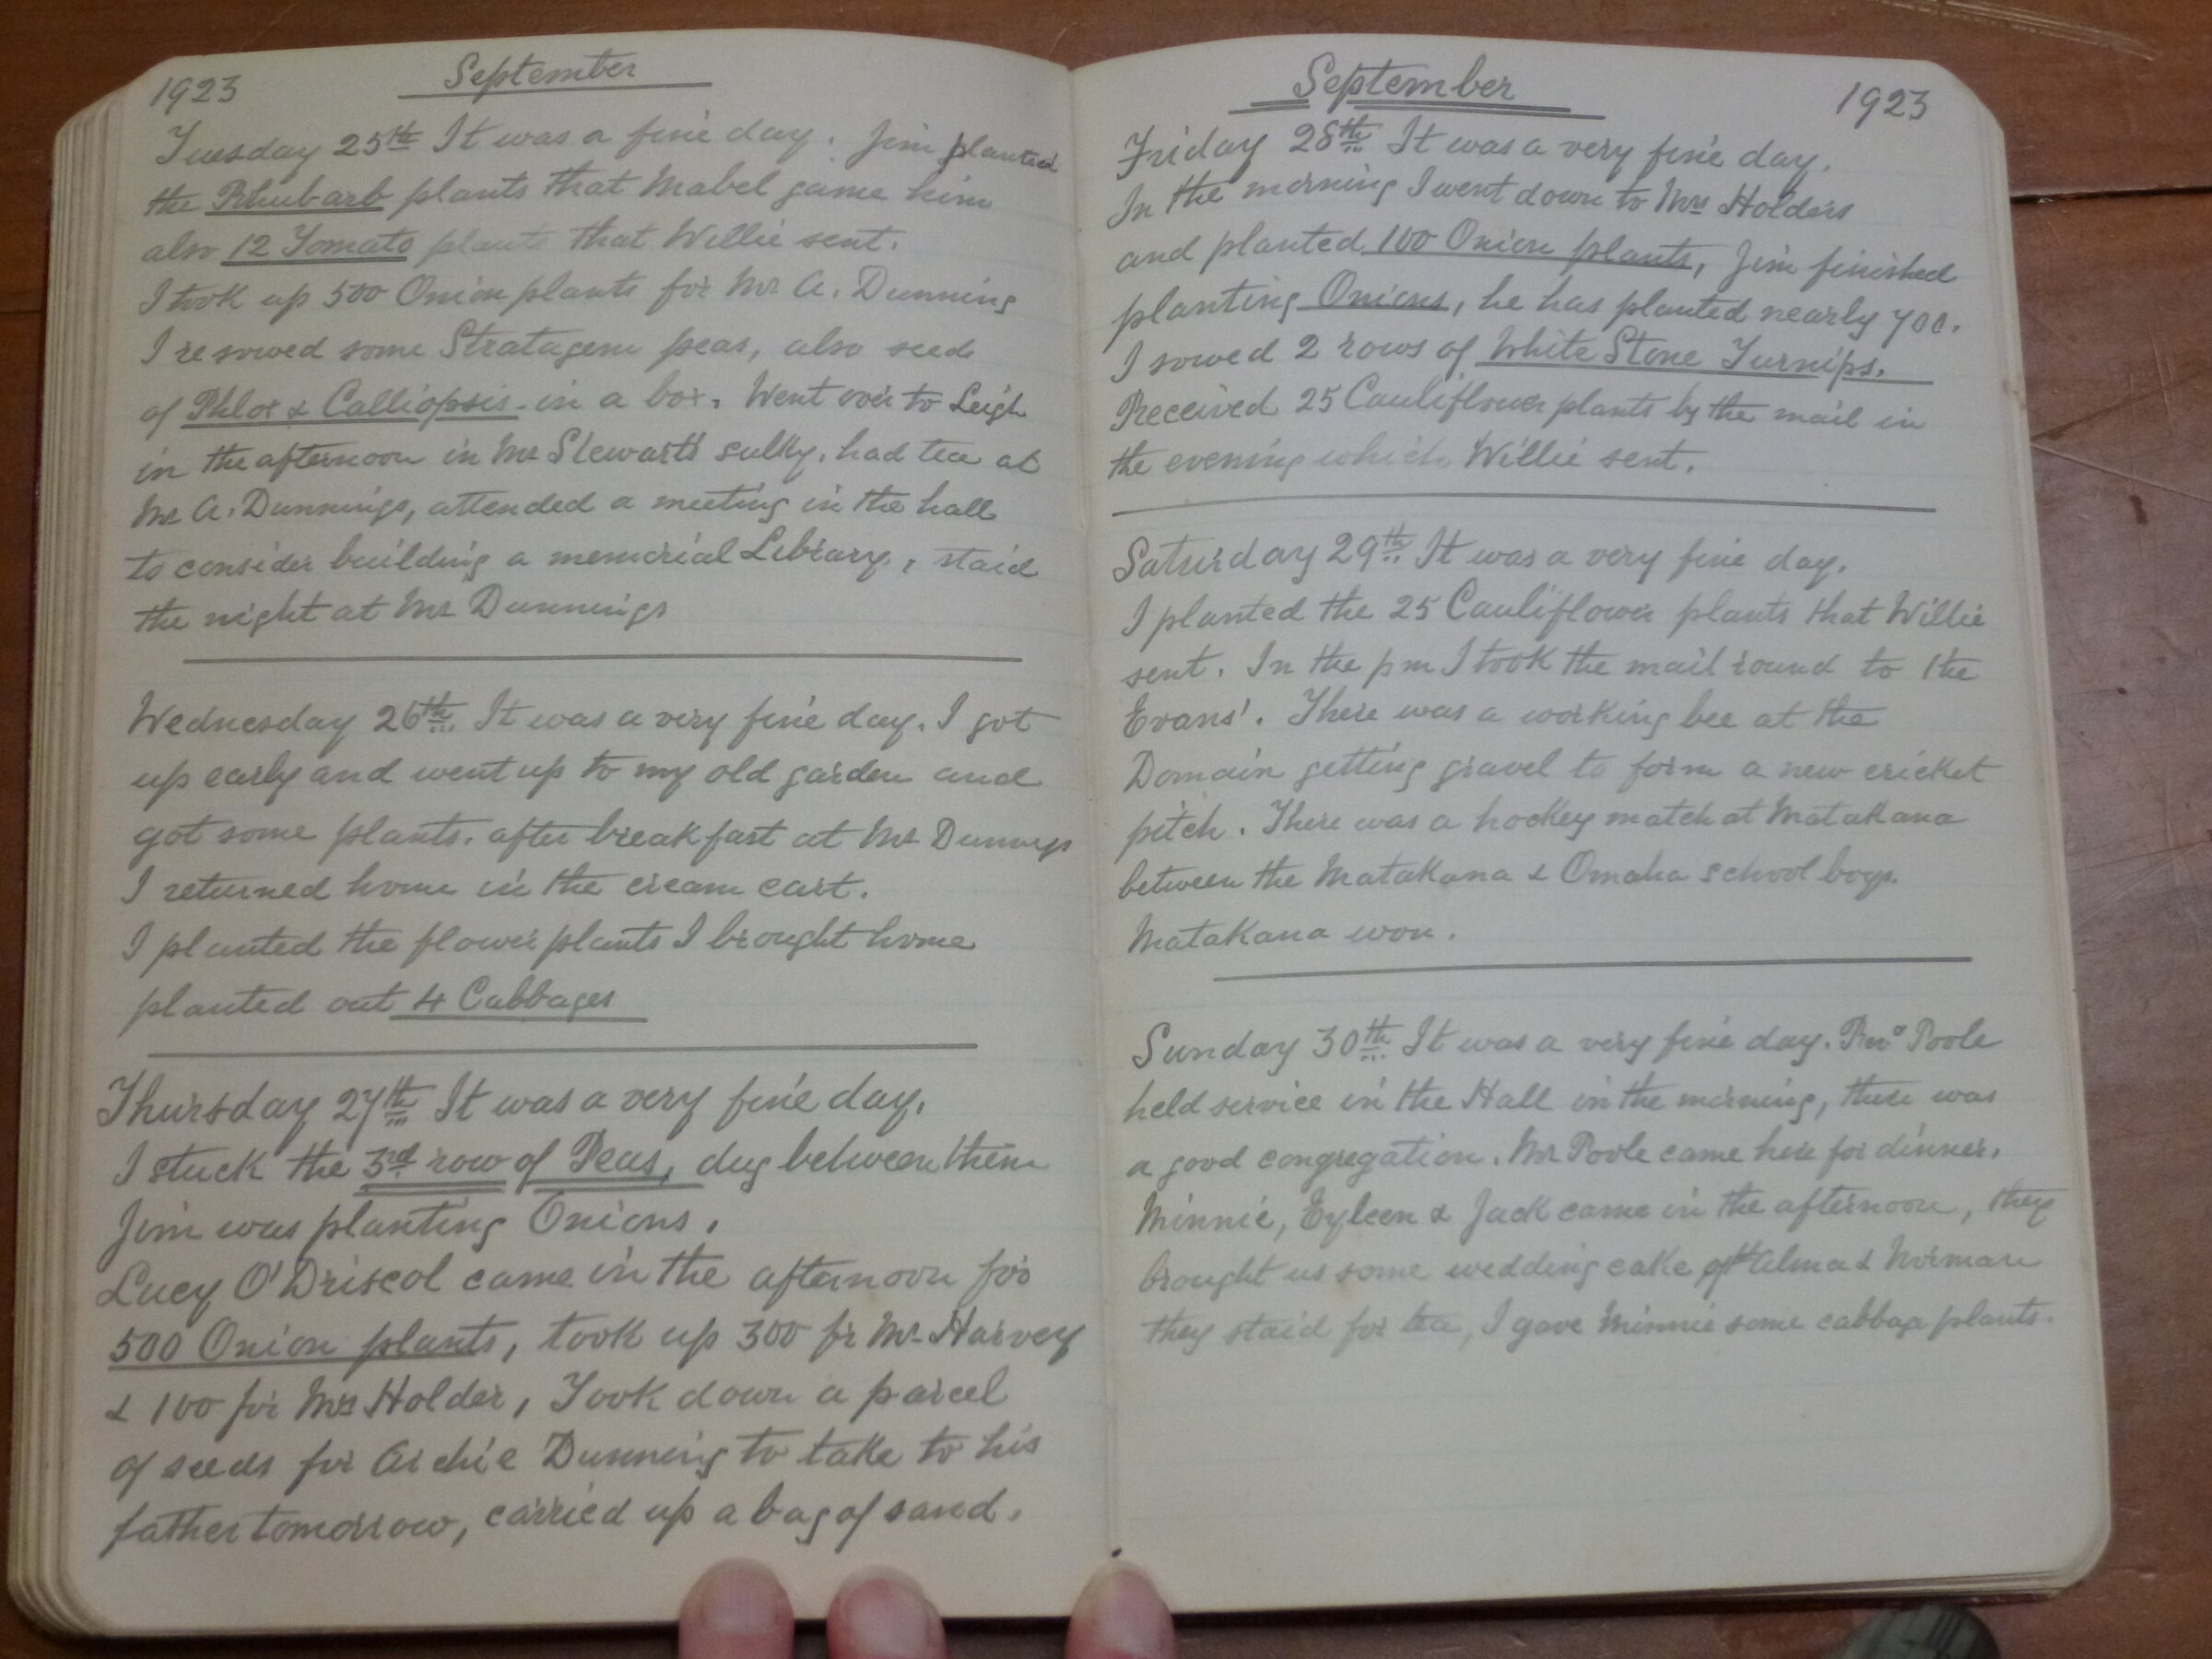 1923 September
Tuesday 25th It was a fine day. Jim planted
the Rhubarb plants that Mabel game him
also 12 Tomato plants that Willie sent.
I took up 500 Onion plants for Mr A. Dunning
I resowed some Stratagem peas, also seeds
of Phlox & Calliopsis in a box. Went over to Leigh
in the afternoon in Mr Stewarts sulky, had tea at
Mr A. Dunnings, attended a meeting in the hall
to consider building a memorial Library, staid
the night at Mr Dunnings
Wednesday 26th It was a very fine day. I got
up early and went up to my old garden and
got some plants. after breakfast at Mr Dunnings
I returned home in the cream cart.
I planted the flower plants I brought home
planted out 4 Cabbages
Thursday 27th It was a very fine day.
I stuck the 3rd row of Peas, dug between them
Jim was planting Onions.
Lucy O'Driscol came in the afternoon for
500 Onion plants, took up 300 for Mr Harvey
& 100 for Mrs Holder, Took down a parcel
of seeds for Archie Dunning to take to his
father tomorrow, carried up a bag of sand.
September 1923
Friday 28th It was a very fine day.
In the morning I went down to Mrs Holders
and planted 100 Onion plants, Jim finished
planting Onions, he has planted nearly 700.
I sowed 2 rows of White Stone Turnips.
Received 25 Cauliflower plants by the mail in
the evening which Willie sent.
Saturday 29th It was a very fine day.
I planted the 25 Cauliflower plants that Willie
sent. In the pm I took the mail round to the
Evans'. There was a working bee at the
Domain getting gravel to form a new cricket
pitch. There was a hockey match at Matakana
between the Matakana & Omaha school boys.
Matakana won.
Sunday 30th It was a very fine day. Revd Poole
held service in the Hall in the morning, there was
a good congregation. Mr Poole came here for dinner.
Minnie, Eyleen & Jack came in the afternoon, they
brought us some wedding cake of Alma & Norman
they staid for tea, I gave Minnie some cabbage plants.